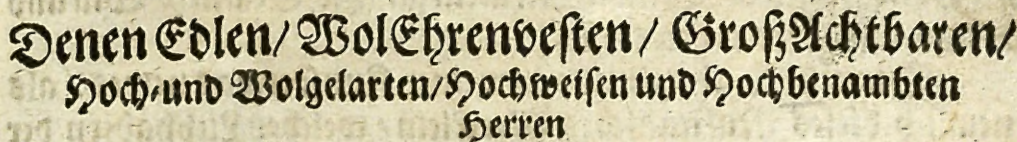 Denen Edlen/ WolEhrenvesten / GroßAchtbaren/
Hoch-und Wolgelarten/Hochweisen und Hochbenambten
Herren